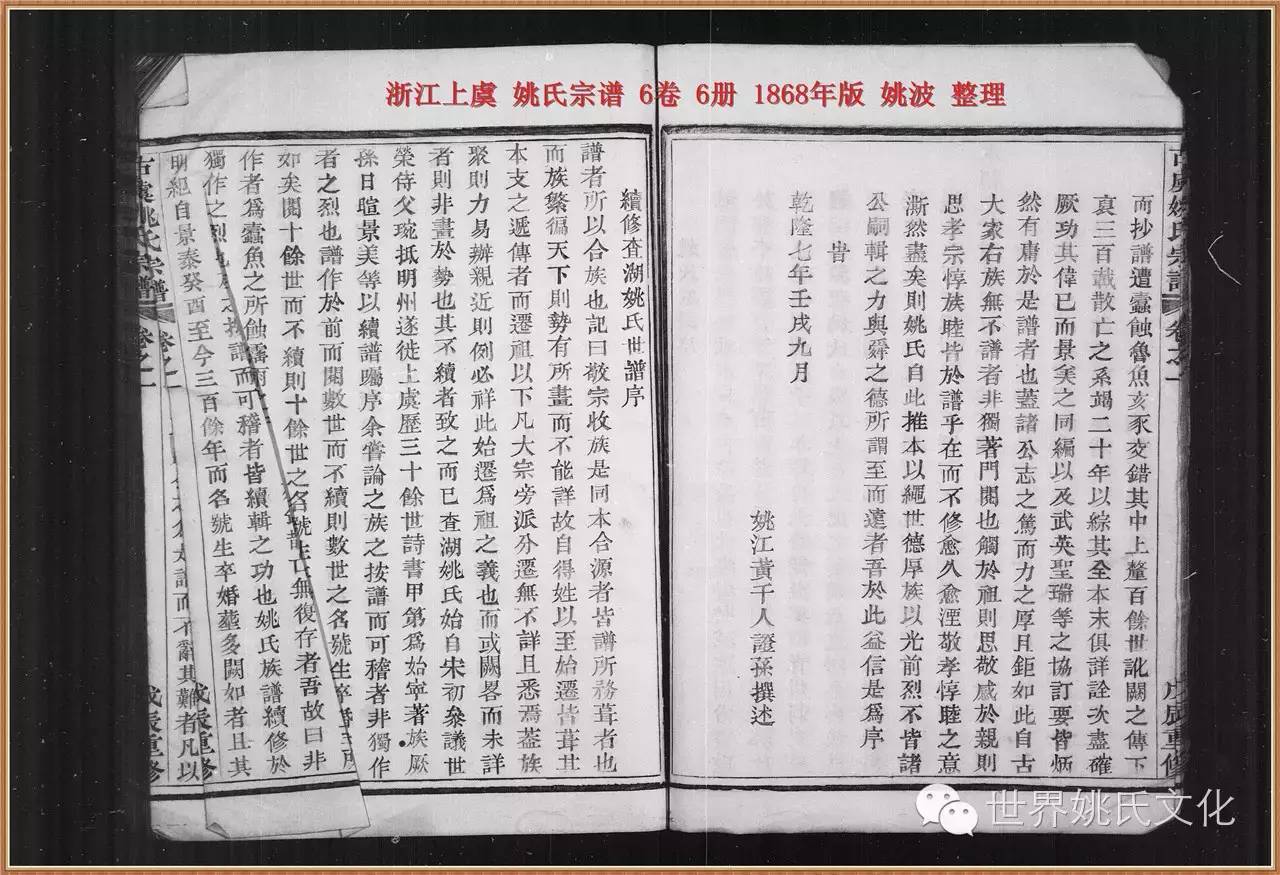 浙江上虞 姚氏宗谱 6卷 6册 1868年版 姚波 整理
古虞姚氏宗譜 卷之一
戊辰重修
而抄譜遭蠹蝕魯魚亥豕交錯其中上釐百餘世訛闕之傳下
裒三百載散亡之系竭二十年以綜其全本末俱詳詮次盡確
厥功其偉已而景矣之同編以及武英聖瑞等之協訂要皆炳
然有庸於是譜者也蓋諸公志之篤而力之厚且鉅如此自古
大家右族無不譜者非獨著門閥也觸於祖則思敬感於親則
思孝宗惇族睦皆於譜乎在而不修愈久愈湮敬孝惇睦之意
澌然盡矣則姚氏自此推本以繩世德厚族以光前烈不皆諸
公嗣輯之力與舜之德所謂至而遠者吾於此益信是爲序
旹
乾隆七年壬戌九月
姚江黃千人證孫撰述
續修查湖姚氏世譜序
譜者所以合族也記曰敬宗收族是同本合源者皆譜所務葺者也
而族繁徧天下則勢有所畫而不能詳故自得姓以至始遷皆葺其
本支之遞傳者而遷祖以下凡大宗旁派分遷無不詳且悉焉葢族
聚則力易辦親近則例必祥此始遷爲祖之義也而或闕畧而未詳
者則非畫於勢也其不續者致之而已查湖姚氏始自宋初叅議世
榮侍父琬抵明州遂徙上虞歷三十餘世詩書甲第爲始寧著族厥
孫日暄景美等以續譜囑序余嘗論之族之按譜而可稽者非獨作
者之烈也譜作於前而閱數世而不續則數世之名號生卒
矣閱十餘世而不續則十餘世之名號 無復存者吾故曰非
作者爲蠹魚之所蝕 譜而可稽者皆續輯之功也姚氏族譜續修於
獨作之烈也
明 自景泰癸酉至今三百餘年而名號生卒婚葬多闕如者且其
譜而不辭其難者凡以
古虞姚氏宗譜 卷之一
戊辰重修
世界姚氏文化